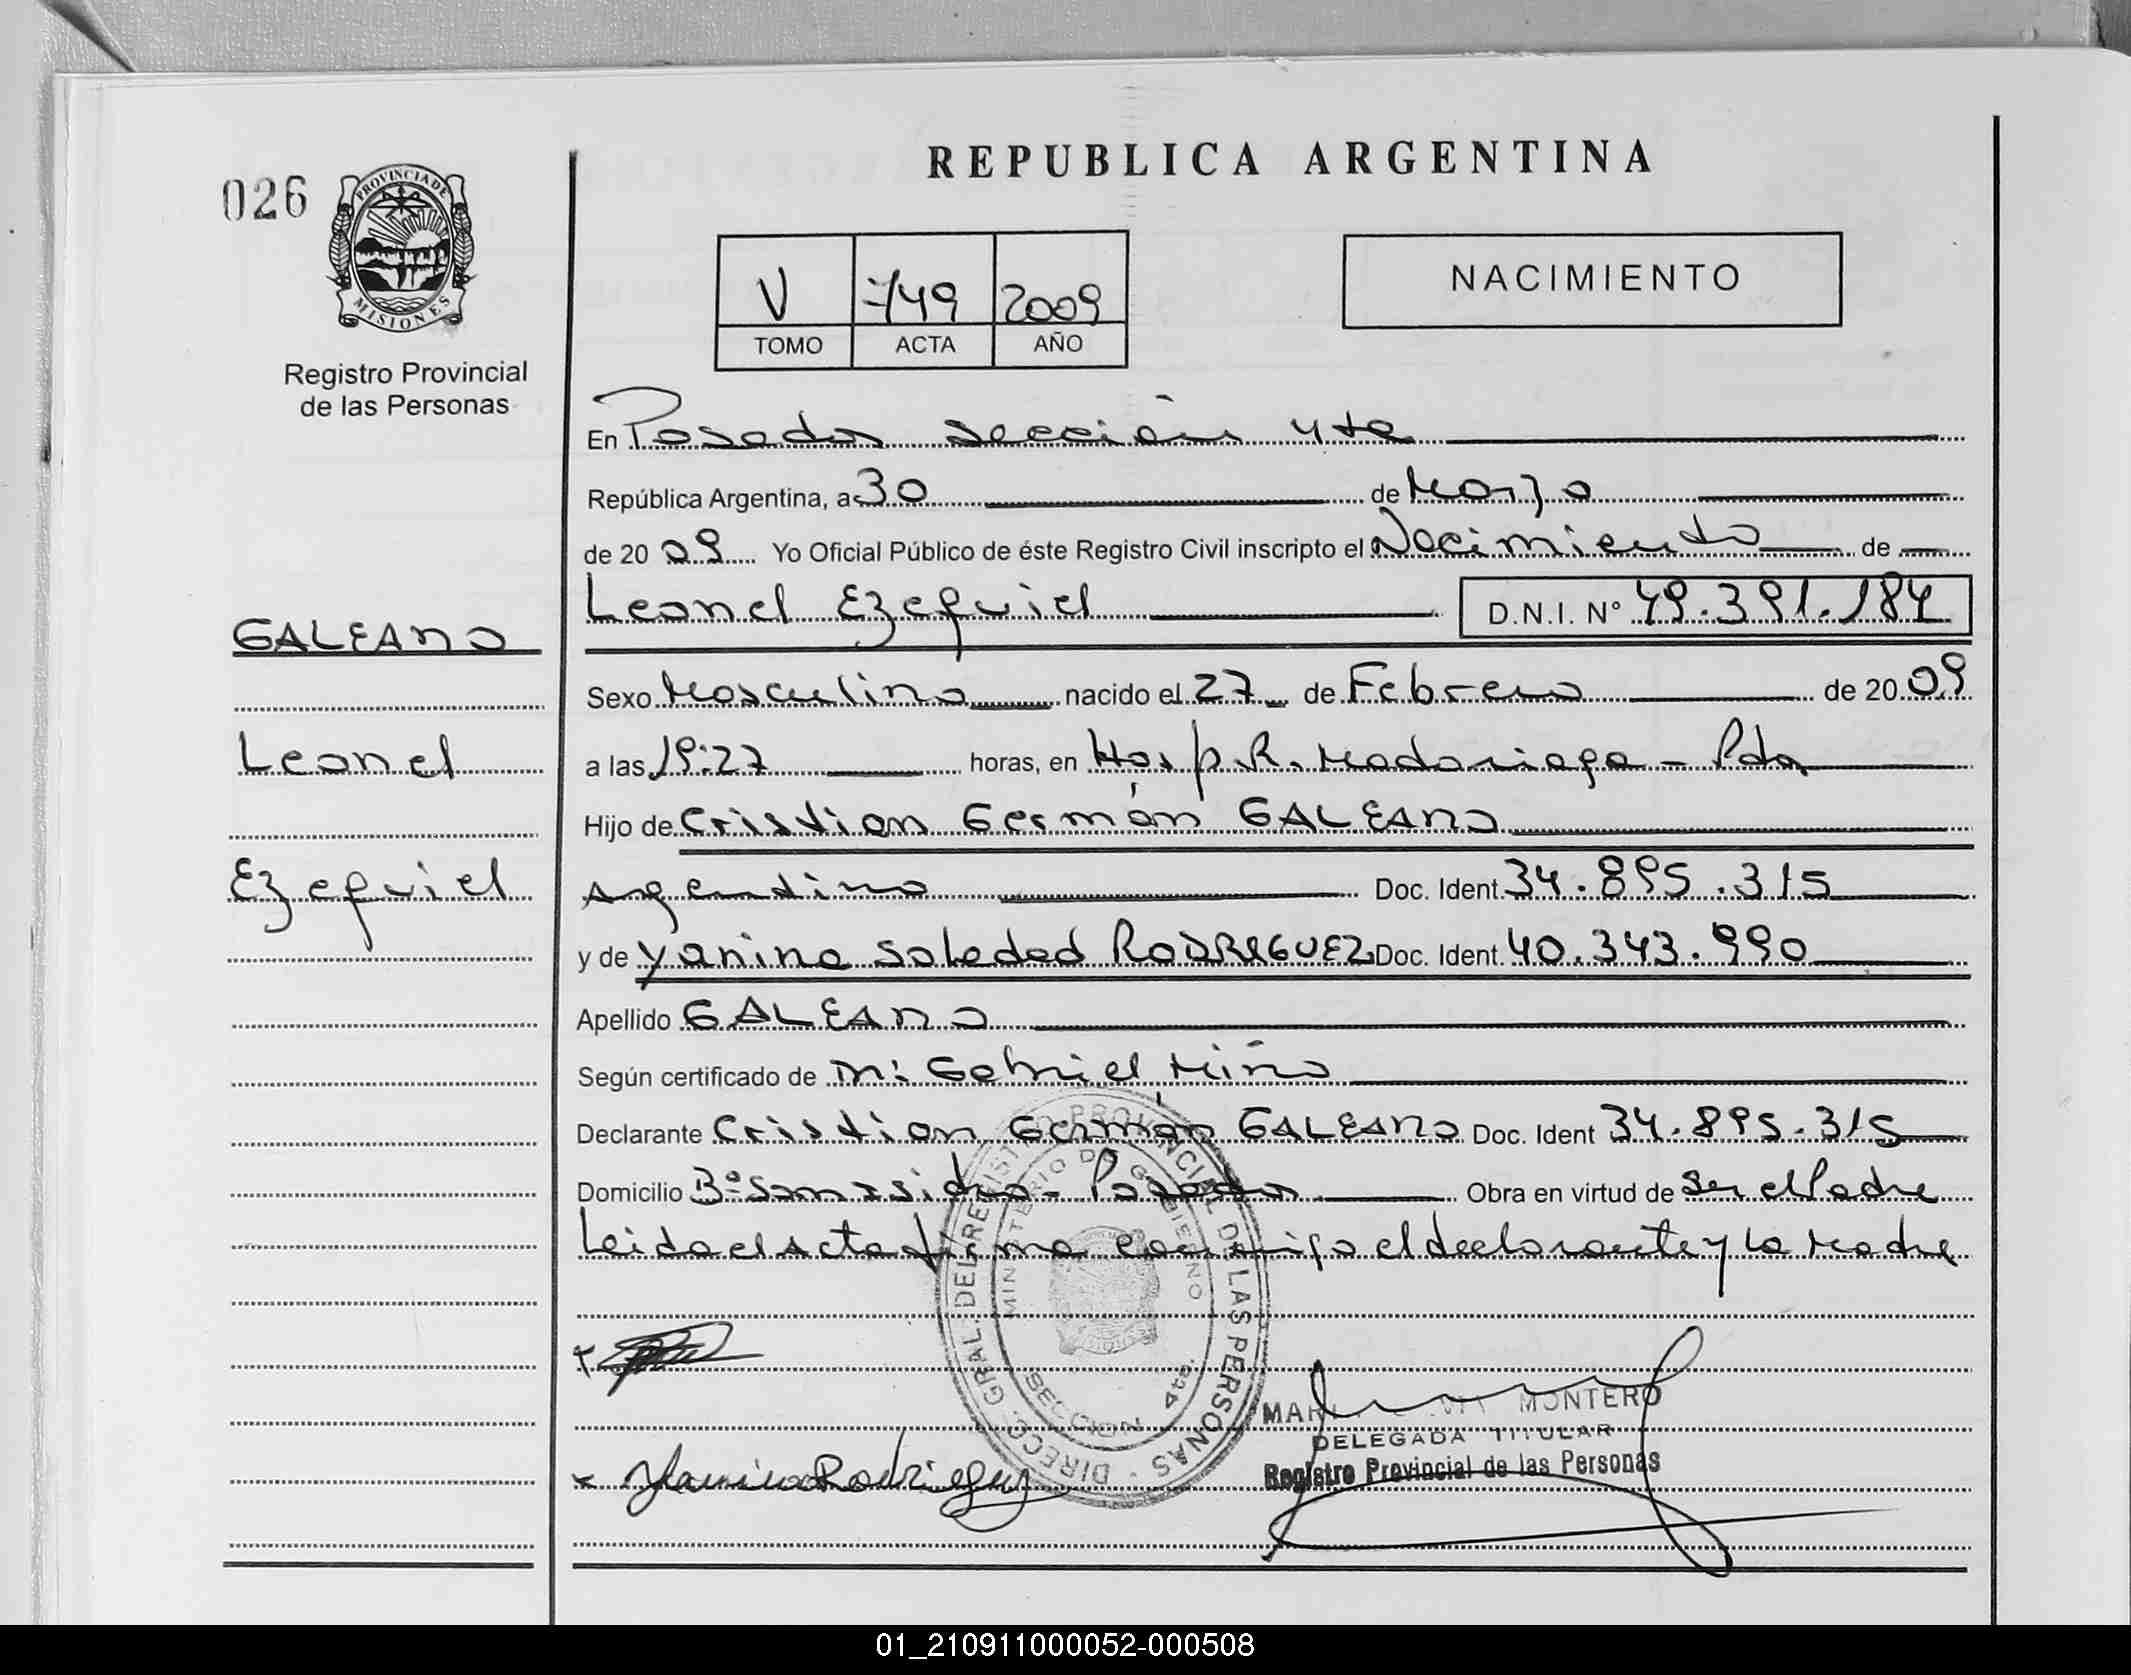 026
PROVINCIA DE
MISIONES
Registro Provincial
de las Personas
GALEANO
Leonel
Ezequiel
REPUBLICA ARGENTINA
V 749 2009
TOMO ACTA AÑO
NACIMIENTO
En Posadas sección 4ta
República Argentina, a 30 de Marzo
de 20 09 Yo Oficial Público de éste Registro Civil inscripto el Nacimiento de
Leonel Ezequiel D.N.I. N° 49.391.184
Sexo Masculino nacido el 27 de Febrero de 20 09
a las 19:27 horas, en Hosp. R. Madariaga - Pdas
Hijo de Cristian Germán GALEANO
Argentino Doc. Ident. 34.895.315
y de Yanina Soledad RODRIGUEZ Doc. Ident. 40.343.990
Apellido GALEANO
Según certificado de Gabriel Miño
Declarante Cristian Germán GALEANO Doc. Ident 34.895.315
Domicilio Bº - Posadas Obra en virtud de Ser el Padre
Leida el acta firma conmigo el declarante y la Madre
DIRECC. GRAL. DEL REGISTRO PROVINCIAL DE LAS PERSONAS -
MINISTERIO DE GOBIERNO
SECCION 4ta.
MONTERO
DELEGADA TITULAR
Registro Provincial de las Personas
Yanina Rodriguez
01_210911000052-000508